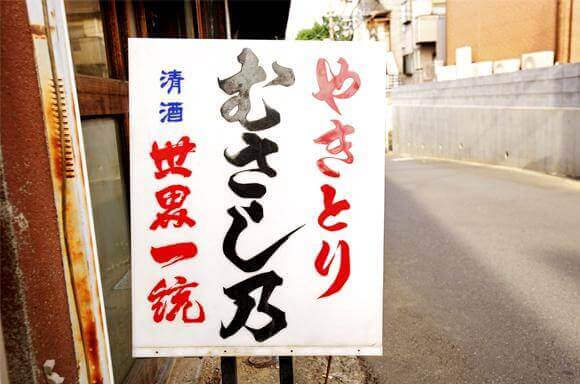 やきとり
むさし乃
清酒
世界一統